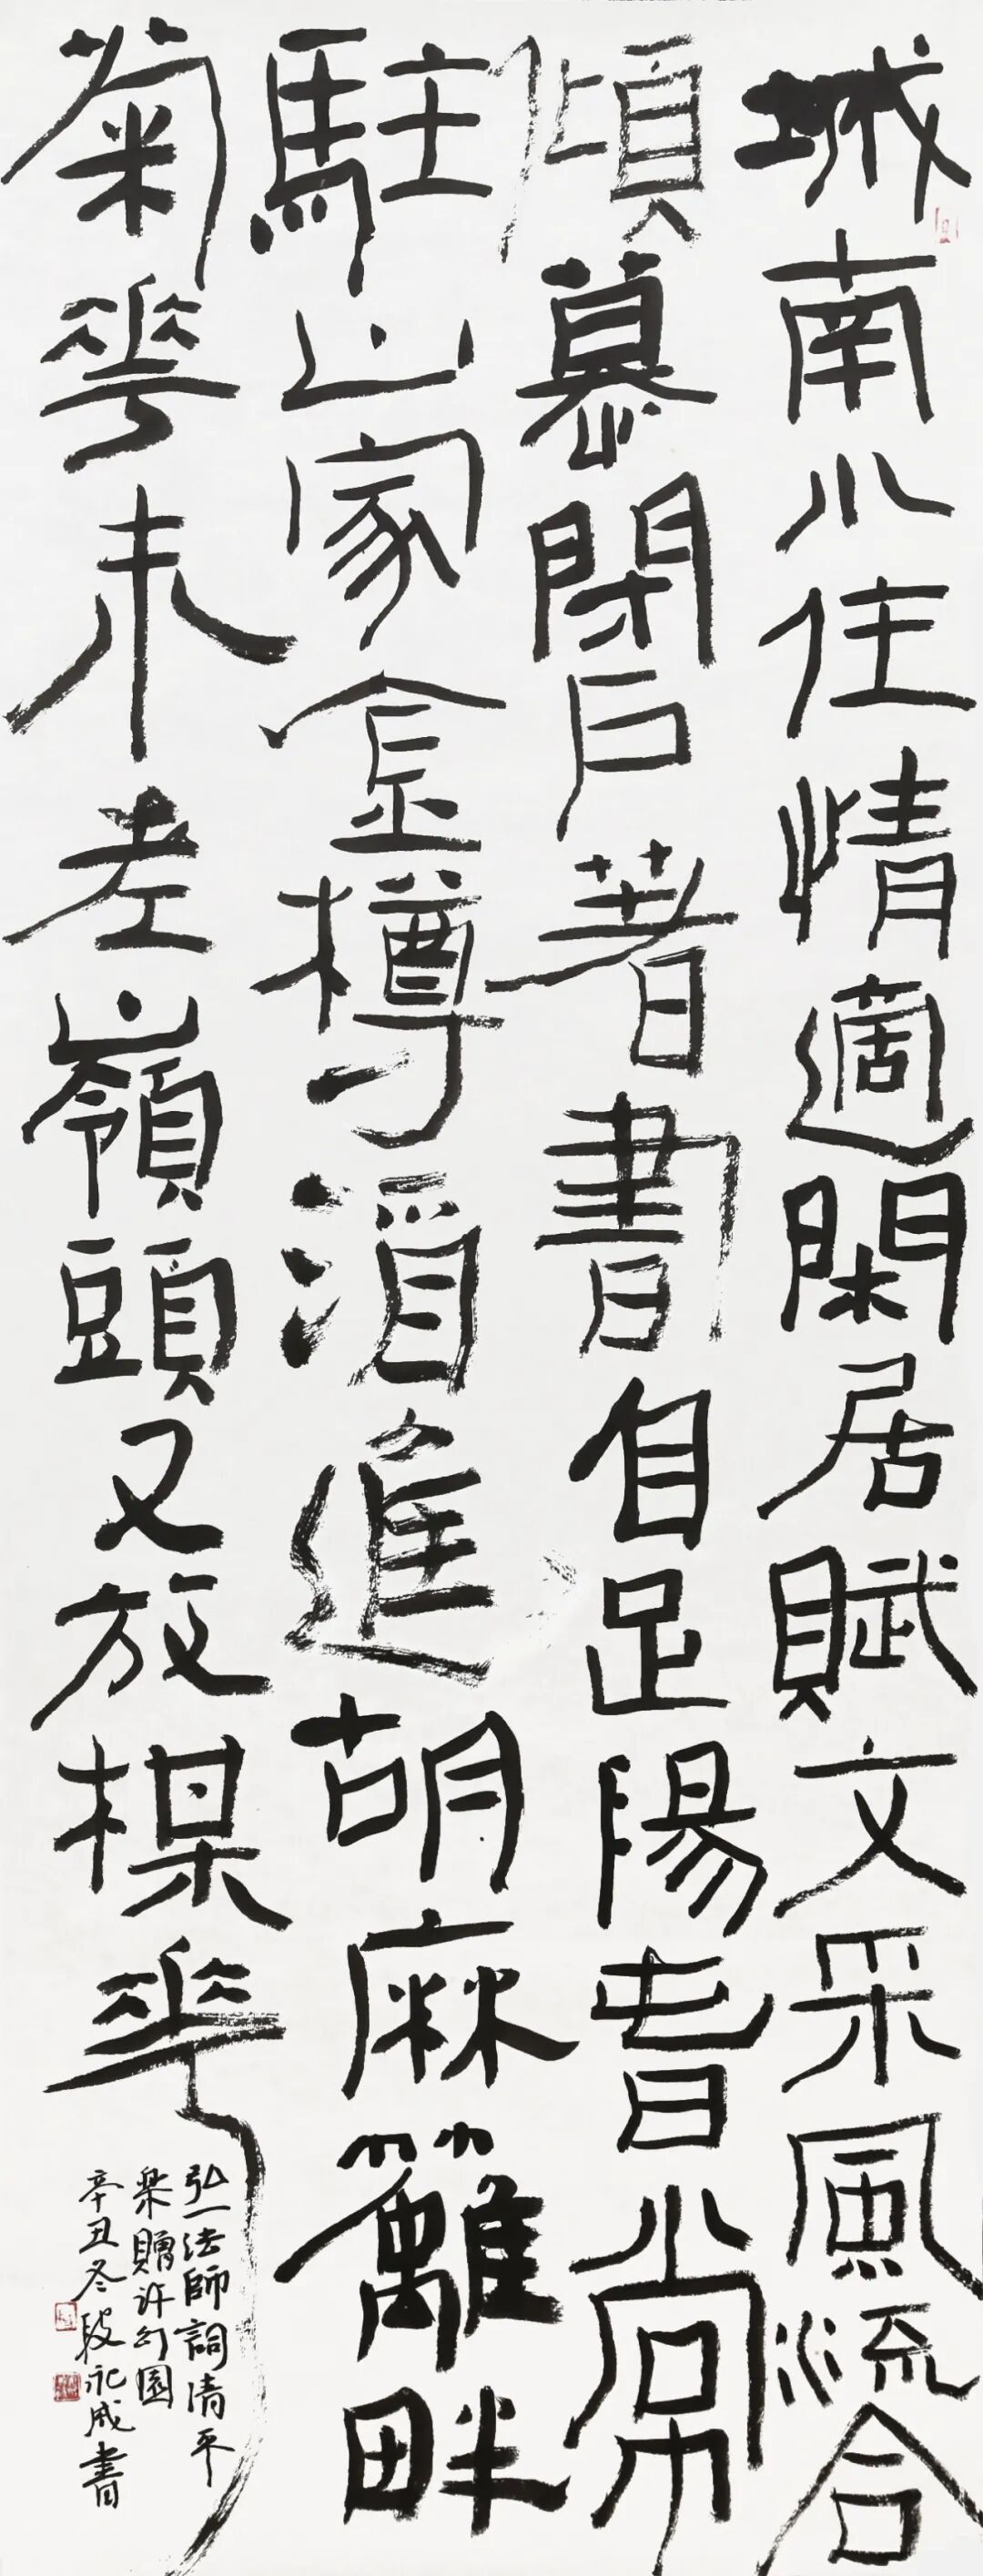 城南小住情適閑居賦文采風流合
傾慕閉戶著書自足陽春常
駐山家金樽酒進胡麻籬畔
菊華未老嶺頭又放楳華
弘一法師詞清平
樂贈许幻園
辛丑冬段祀咸書